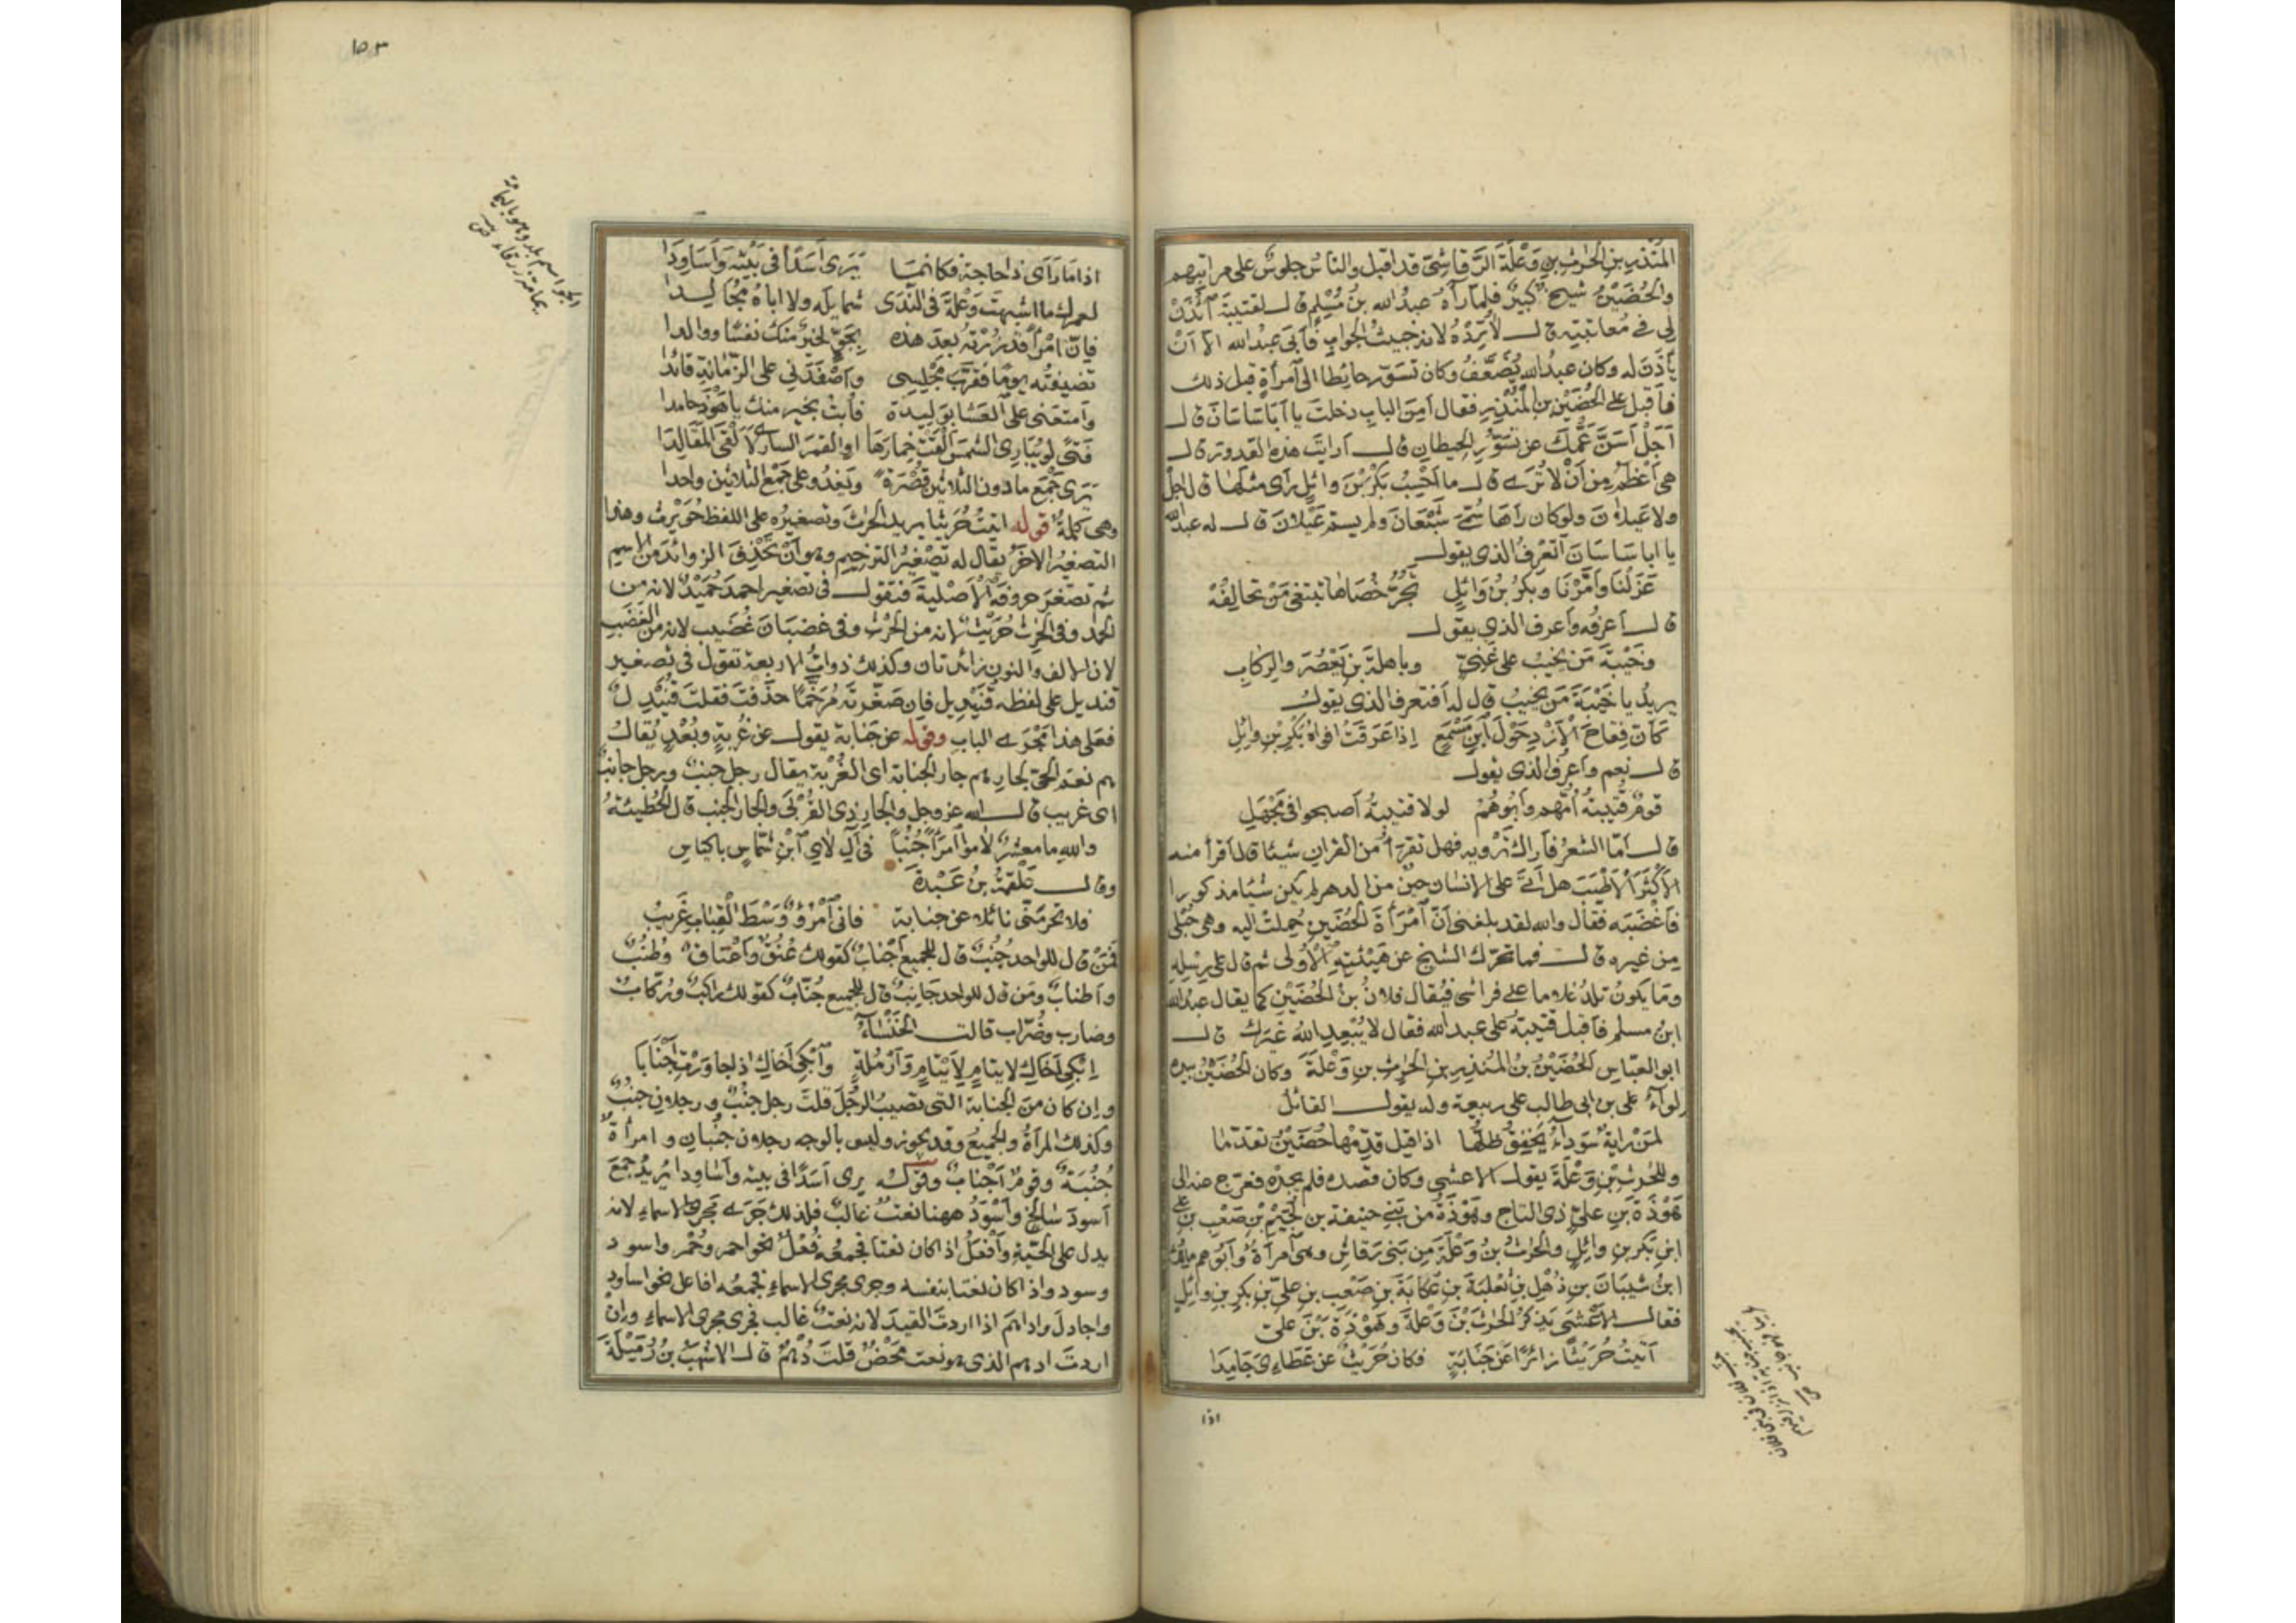 المنذر بن الحرث بن وَعْلَةَ الرَّقاشِيّ قد اقبل والناس جلوسٌ على مراتبهم
والحُضَيْنُ شيخ كبيرٌ فلمّا رآه عبدُ الله بنُ مُسْلِمٍ قال لقتيبة ائْذَنْ
لى فى مُعاتبتِه قال لا تُرِدْهُ لانه خبيثُ الجوابِ فأبَى عبدُ الله الا اَنْ
يأذَنَ له وكان عبدُ الله يُضَعَّفُ وكان تسوّر حائطا الى امرأةٍ قبل ذلك
فاَقبل على الحُضَيْنِ بن المُنْذِرِ فقال اَمِنَ البابِ دخلتَ يا اَبَا سَاسَانَ قال
اَجَلْ اَسَنَّ عَمُّكَ عن تسَوُّرِ الحِيطانِ قال اَرايتَ هذه القدورَ قال
هى اَعْظَمُ مِن اَنْ لا تُرَى قال ما اَحْسِبُ بَكْرَ بْنَ وائِلٍ رَأى مثلَها قال اجل
ولا عَيلانَ ولو كان رآها سُمِّىَ شَبْعَانَ ولم يسمّ عَيْلانَ قال له عبد الله
يا ابا سَاسَانَ اَتَعْرِفُ الذى يقول
عَزَلْنَا وَاَمَّرْنَا وبَكْرُ بْنُ وَائِلٍ تَجُرُّ خُصَاهَا تبتغى مَنْ تحالِفُهْ
قال اعرفُه وَاعرف الذى يقول
وخَيْبَةَ مَن يَخِيبُ على غَنِىٍّ وباهلةَ بن يَعْصُرَ والرِّكابِ
يريدُ يا خَيْبَةَ مَن يَخيبُ قال له اَفتعرف الذى يقول
كَاَنّ فِقاحَ الْاَزْدِ حَوْلَ ابنِ مِسْمَعٍ اِذا عَرِقَتْ افواهُ بَكْرِ بْنِ وائِلِ
قال نعم واَعرف الذى يقول
قومٌ قُتَيبةُ اُمُّهم وَاَبُوهُمْ لولا قتيبةُ اَصبحوا فى مَجْهَلِ
قال اَمّا الشعرُ فاَراك تَرْويه فهل تقرأُ من القرانِ شيئا قال اَقرأ منه
الاَكْثَرَ الْاَطْيَبَ هل اَتَى على الانسان حينٌ من الدهر لم يكن شيئا مذكورا
فَاَغْضَبَه فقال والله لقد بلغنى اَنّ امْرَأةَ الحُضَينِ حُمِلتْ اليه وهى حُبْلَى
مِن غيرِه قال فما تحرّك الشيخ عن هَيْئتِه الاُولى ثم قال على رِسْلِه
ومَا يكونُ تلدُ غلاما على فراشى فيُقال فلانُ بنُ الحُضَيْنِ كما يقال عبدُ الله
ابنُ مسلم فاَقبل قتيبةُ على عبد الله فقال لا يُبْعِدِ اللهُ غَيرَك قال
ابو العبّاس الحُضَيْنُ بنُ المُنذِرِ بنِ الحَرِثِ بنِ وَعْلَةَ وكان الحُضَيْنُ بيده
لواءُ على بن ابى طالب على ربيعة وله يقول القائل
لمَنْ رايةٌ سَوداءُ يَخْفِقُ ظلُّها اذا قيل قدِّمْها حُضَيْنُ تقدّما
وللحَرثِ بْنِ وَعْلَةَ يقول الاعشى وكان قصده فلم يحمدْه فعرّج عنه الى
هَوْذَةَ بن علىّ ذى التاج وهَوْذَةُ من بَنِى حنيفة بن لُجَيْمِ بنِ صَعْبِ بن على
ابنِ بَكر بن وائلٍ والحَرثُ بنُ وَعْلَةَ مِن بَنِى رَقاشِ وهى امرأةٌ وَاَبُوهم مالِكُ
ابنُ شيبانَ بنِ ذُهْلِ بنِ ثعلبَةَ بنِ عُكَابَةَ بنِ صَعْبِ بنِ علىّ بن بكرِ بنِ وائِلٍ
فقال الاَعْشَى يَذكرُ الحرثَ بْنَ وَعْلةَ وهَوْذَةَ بْنَ علىّ
اَتيتُ حُرَيْثًا زائرًا عن جَنابَةٍ فكان حُرَيْثٌ عن عَطَاءِىَ جَامِدَا
اذا
١٥٣
اذا مَا رَأَى ذا حاجة فكانمَا يَرَى اَسَدًا فى بَيْتِه وَاَسَاوِدَا
لعمرك ما اشبهتَ وَعْلَةَ فى النَّدَى شمايلَه ولا اباهُ مُجَالِدا
فاِنّ امْرَأً قد زُرْتُه بعدَ هذه بِجَوٍّ لخيرٌ منك نفسًا ووالدا
تضيفتُه يومًا فقرَّبَ مَجْلِسِى واَصْفَدَنِى على الزَّمَانةِ قائدًا
واَمتعنى على العشا بوَلِيدَةٍ فاُبتُ بخيرٍ منك يا هَوْذَ حامدا
فتًى لو يُبَارِى الشمسَ اَلْقَتْ خِمارَهَا اوِ القمرَ السارِى لاَلْقَى المَقَالِدَا
يَرَى جَمْعَ ما دون الثلاثين قُصْرَةً ويَغدُو على جَمْعِ الثلاثين واحدا
وهى كلمةٌ قوله اتيتُ حُرَيثا يريد الحَرِثَ وتصغيرُه على اللفظ حُوَيْرِثٌ وهذا
التصغيرُ الاخَرُ يقال له تصْغيرُ الترخيم وهو اَنْ تَحْذِفَ الزوائدَ من الاسم
ثم تصغرَ حروفَه الْاَصْليةَ فتقول فى تصغير احمدَ حُمَيْدٌ لانه من
الحمد وفى الحَرِث حُرَيْثٌ لانه من الحَرْثِ وفى غضبَانَ غُضَيب لانه من الغَضَبِ
لان الالف والنون زائدتان وكذلك ذواتُ الاربعة تقول فى تصغير
قنديل على لفظه قُنَيْدِيل فاِن صَغَّرتَه مُرَخَّمًا حذفتَ فقلتَ قُنَيْدِلٌ
فعَلى هذا مَجْرَى الباب وقولُه عن جَنابة يقول عن غُربَةٍ وبُعْدٍ يُقال
هم نعم الحىّ لجارِهم جار الجنابة اى الغُربة يقال رجل جنبٌ ورجل جانبٌ
اى غريب قال الله عز وجل والجارِ ذى القُرْبَى والجار الجنب قال الحُطيئةُ
والله ما معشرٌ لاموا امرَأً جُنُبًا فى آلِ لأىِ ابْنِ شَمّاسٍ باكياسِ
وقال عَلْقَمَةُ بنُ عَبْدَةَ
فلا تحرمَنّى نائلا عن جنابة فانى امْرُؤٌ وَسْطَ القِبَابِ غَرِيبُ
فمَنْ قال للواحد جُنُبٌ قال للجميع اَجْنابٌ كقولك عُنُقٌ واَعْنَاقٌ وطُنُبٌ
واَطنابٌ ومَن قال للواحد جَانِبٌ قال للجميع جُنّابٌ كقولك راكبٌ ورُكّابٌ
وضارب وضُرّاب قالت الخَنْسَاءُ
اِبْكِى اَخَاكِ لايتام لاَيْتَامٍ وَاَرْمَلةٍ وابْكِى اَخاكِ اذا جاوَرْتِ اَجْنَابَا
واِن كان منَ الجنابة التى تصيب الرجُلَ قلتَ رجل جنُبٌ ورجلان جنُبٌ
وكذلك المرأةُ والجميعُ وقد يجوز وليس بالوجه رجلان جنُبان وامرأةٌ
جُنُبَةٌ وقومٌ اَجْنابٌ وقوله يرى اَسَدًا فى بيته واَساوِدا يُريدُ جمعَ
اَسودَ سَالخ واَسْوَدُ ههنا نعتٌ غالبٌ فلذلك جَرَى مَجرى الاسماءِ لانه
يدل على الحَيّةِ واَفعَلُ اذا كان نعتا فجمعُه فُعْلٌ نحو احمر وحُمْر واسود
وسود واذا كان نعتا بنفسه وجرى مجرى الاسماءِ فجمعُه افاعل نحو اساود
واجادلَ واداهَم اذا اردتَ القيدَ لانه نعتٌ غالب فجرى مجرى الاسماءِ واِنْ
اردتَ ادهم الذى هو نعت مَحْضٌ قلتَ دُهْمٌ قال الاشهبُ بنُ رُمَيْلَةَ